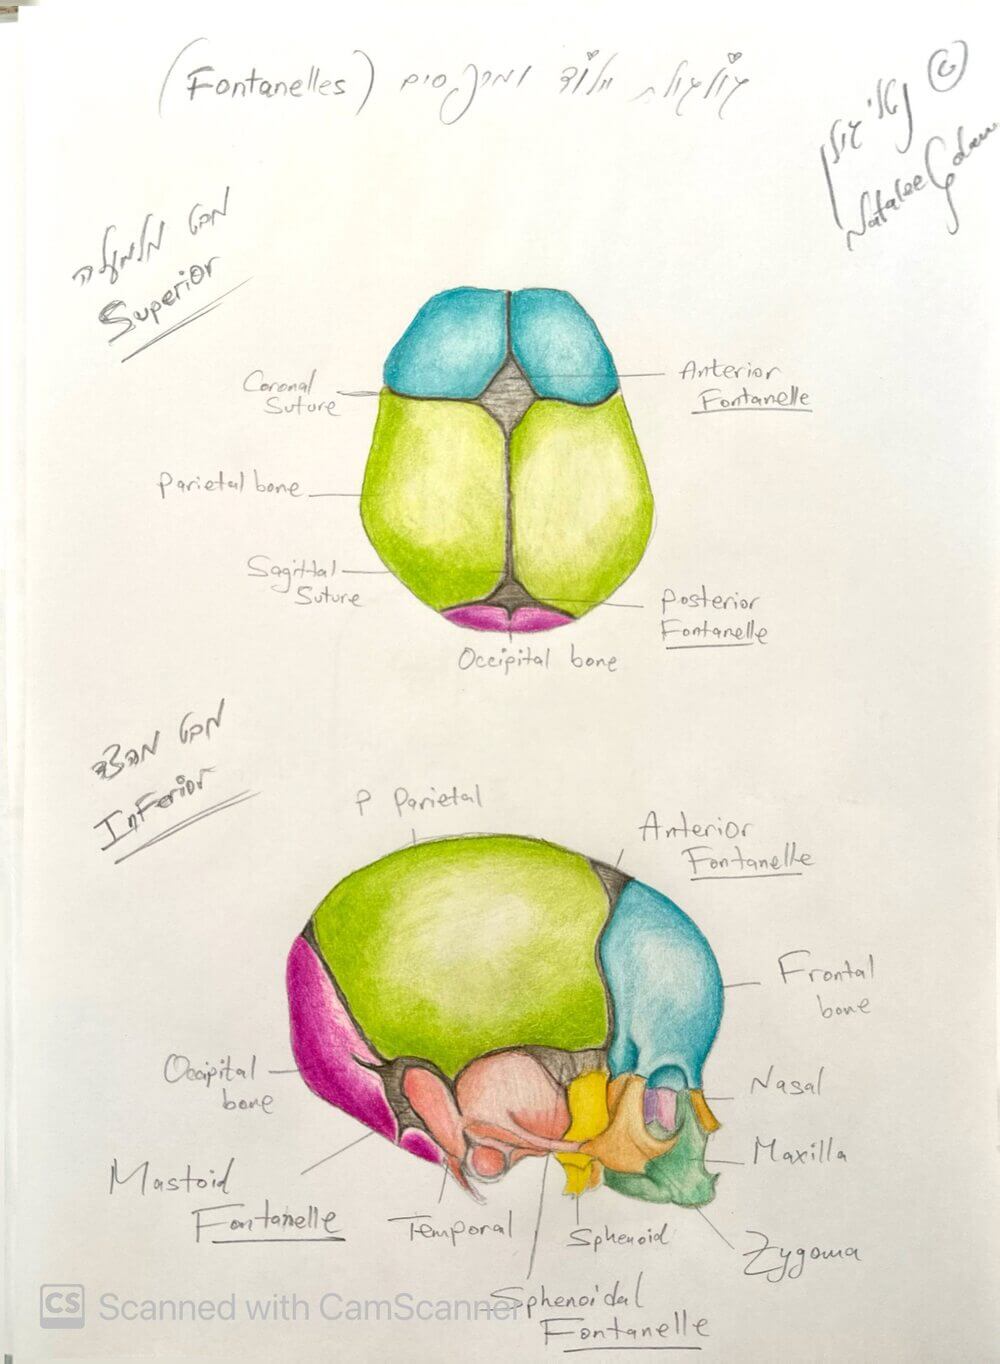 גולגולת יילוד ומרפסים (Fontanelles)
©
נטלי גולן
Natalee Golan
מבט מלמעלה
Superior
Coronal
Suture
Anterior
Fontanelle
Parietal bone
Sagittal
Suture
Posterior
Fontanelle
Occipital bone
מבט מהצד
Inferior
P Parietal
Anterior
Fontanelle
Frontal
bone
Occipital
bone
Nasal
Maxilla
Mastoid
Fontanelle
Temporal
Sphenoid
Zygoma
Sphenoidal
Fontanelle
CS Scanned with CamScanner